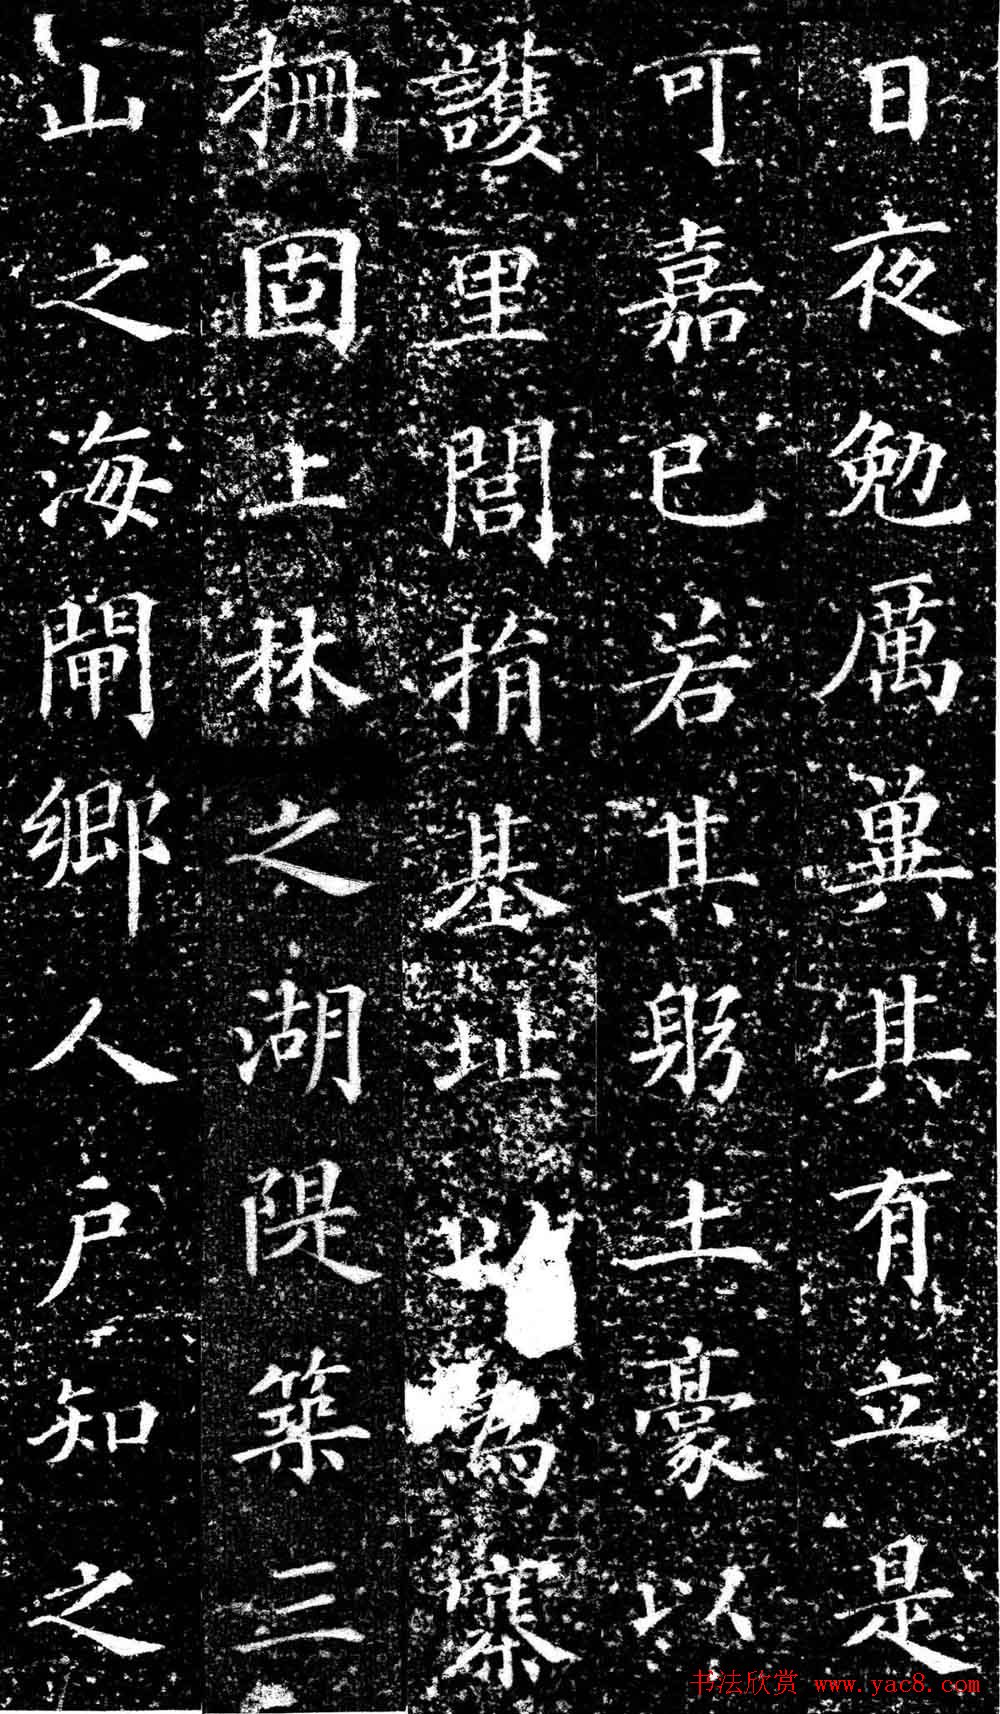 日夜勉厲兾其有立是
可嘉已若其躬土豪以
護里閭捐基址以為寨
柵固上林之湖隄築三
山之海閘鄉人戶知之
书法欣赏 www.yac8.com